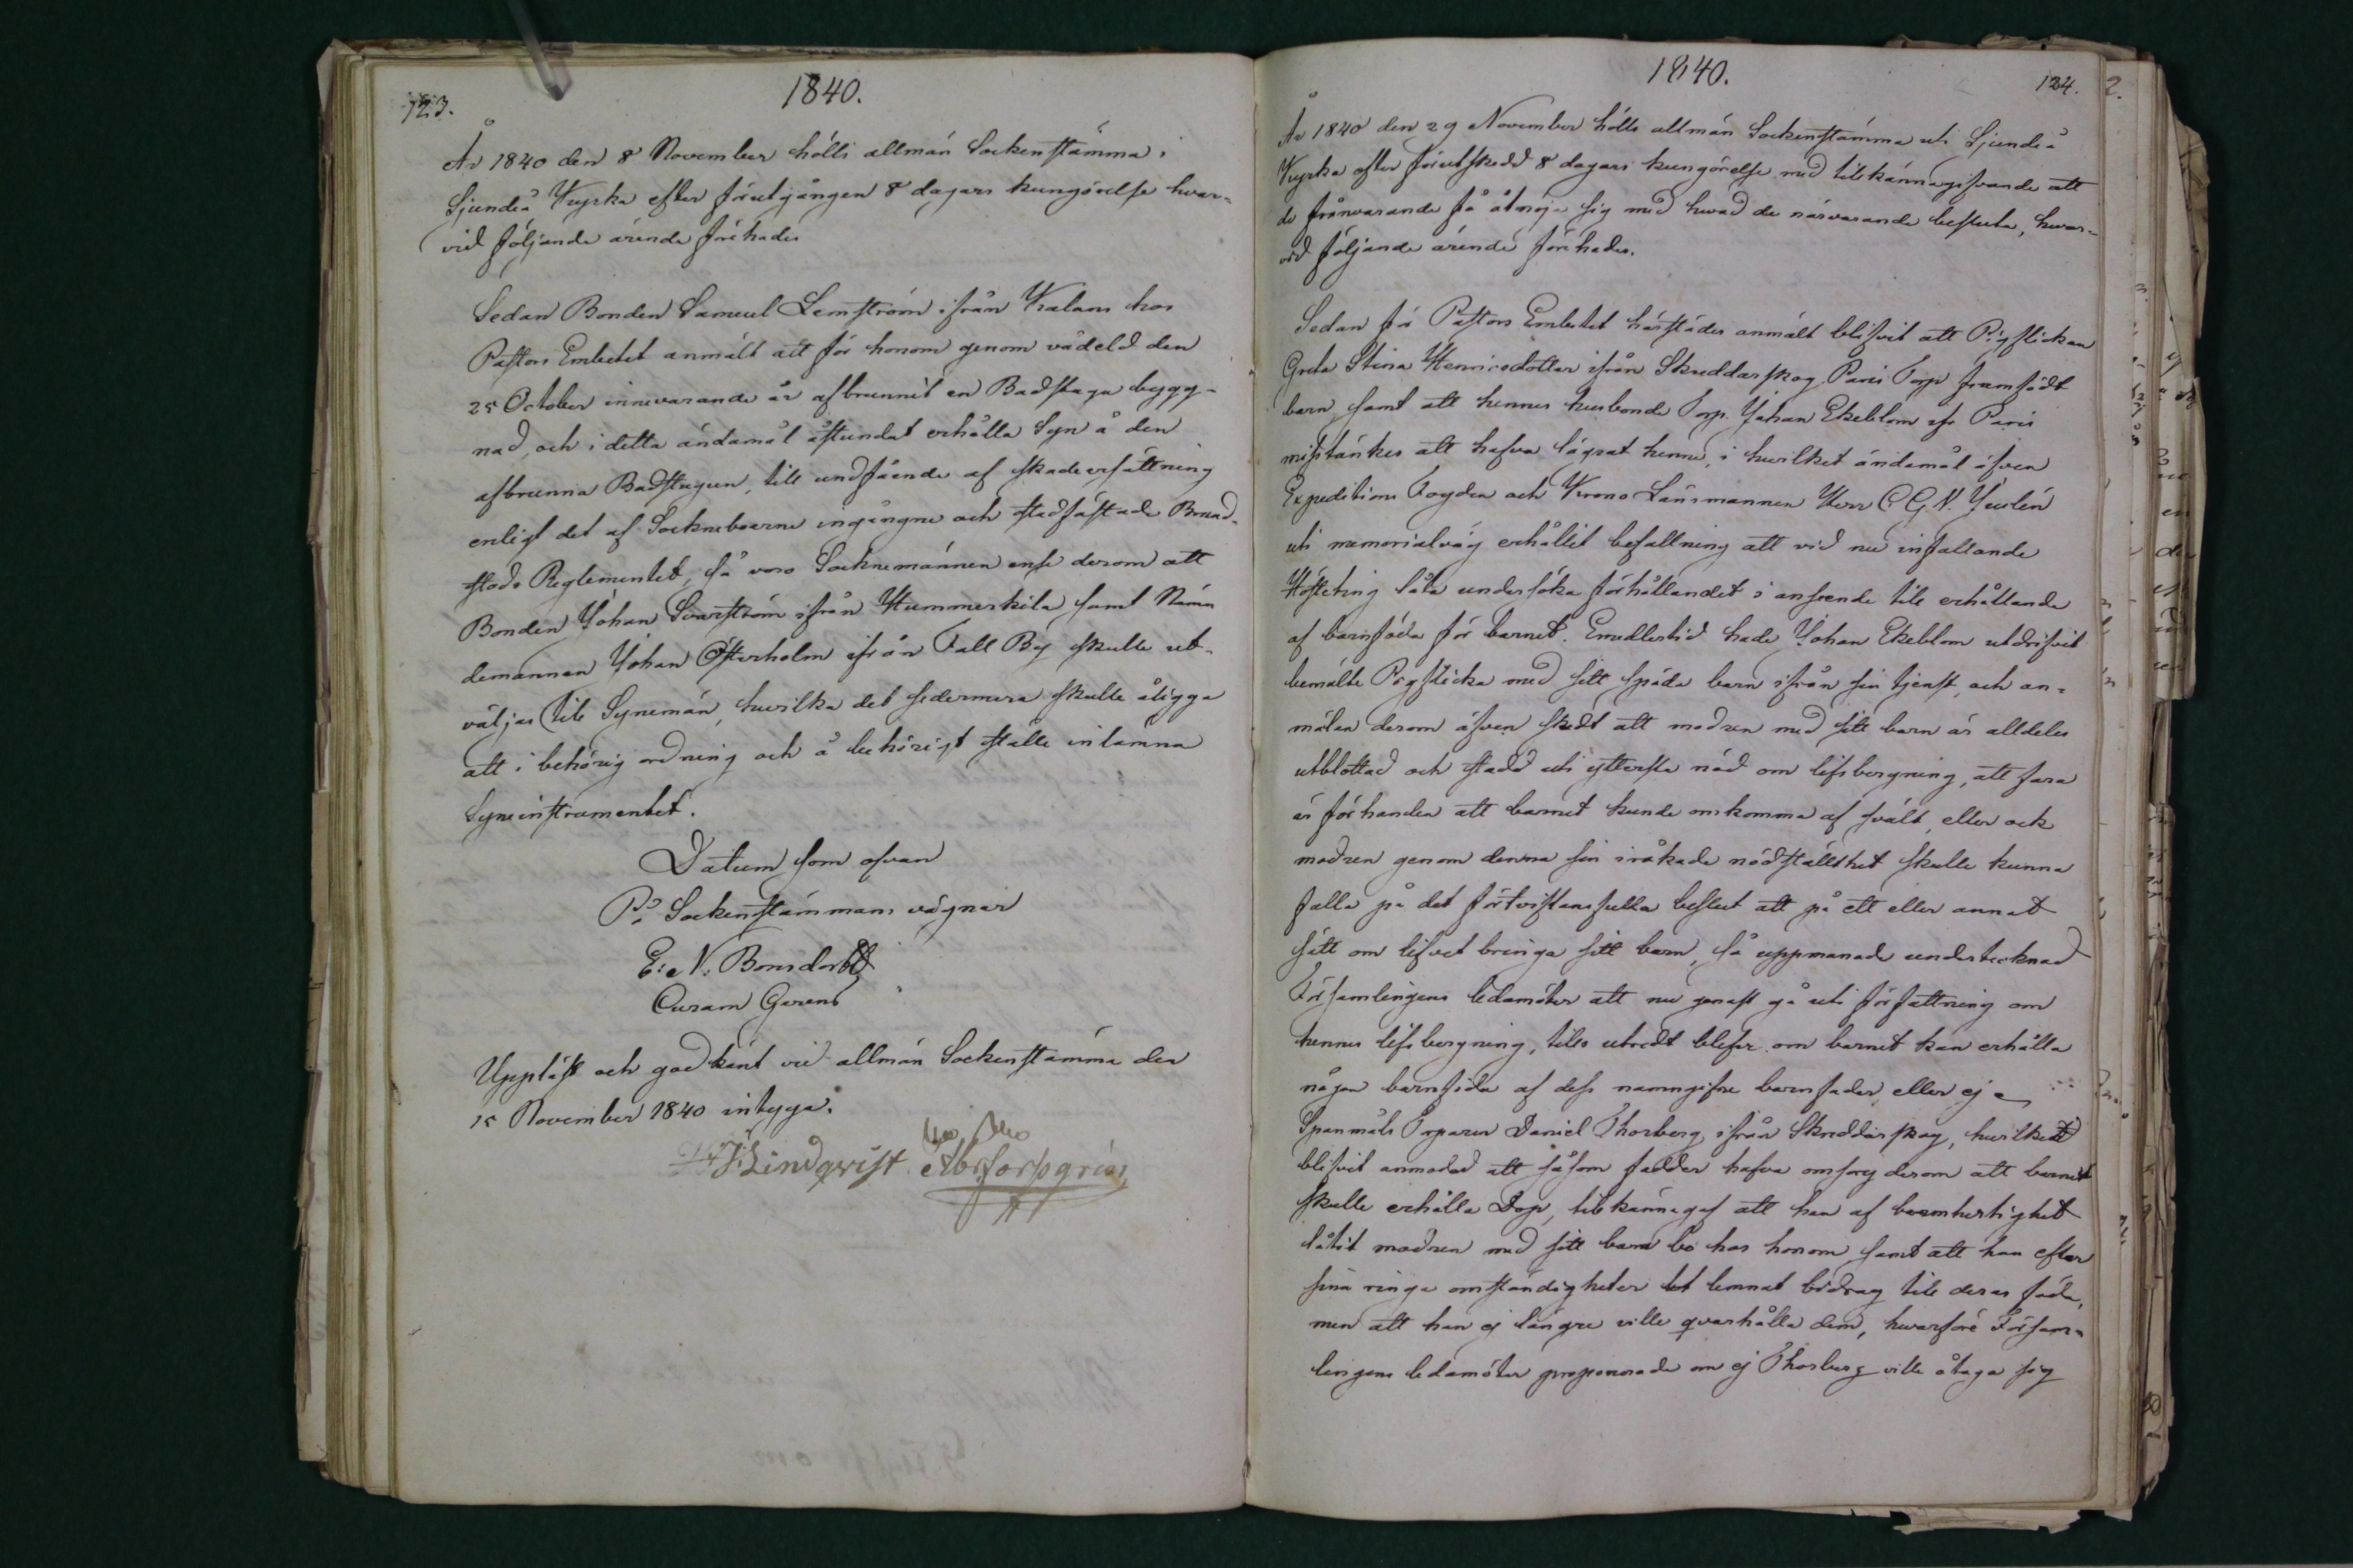 123.
1840.
År 1840 den 8 November hölls allmän Sockenstämma i
Sjundeå Kyrka efter förutgången 8 dagars kungörelse hvar-
vid följande ärende förehades
Sedan Bonden Samuel Lemström ifrån Kalans hos
Pastors Embetet anmält att för honom genom vådeld den
25 October innevarande år afbrunnit en Badstugu bygg-
nad, och i detta ändamål åstundat erhålla Syn å den
afbrunna Badstugun, till undfående af skadeersättning
enligt det af Sockneboerne ingångne och stadfästade Brand-
stods Reglementet, så voro Socknemännen ense derom att
Bonden Johan Svarström ifrån Hummerkila samt Nämn
demannen Johan Österholm ifrån Fall By skulle ut-
väljas till Synemän, hvilka det sedermera skulle åligga
att i behörig ordning och å behörigt ställe inlämna
Syneinstrumentet.
Datum som ofvan
På Sockenstämmans vägnar
E: N: Bonsdorff
Curam Gerens
Uppläst och godkänt vid allmän Sockenstämma den
15 November 1840 intyga.
Lindqvist
1840.
124.
År 1840 den 29 November hölls allmän Sockenstämma uti Sjundeå
Kyrka efter förutskedd 8 dagars kungörelse med tillkännagifvande att
de frånvarande få åtnöja sig med hwad de närvarande besluta, hvar-
vid följande ärende förehades.
Sedan för Pastors Embetet härstädes anmält blifvit att Pigflickan
Greta Stina Henricsdotter ifrån Skräddarskog Paris Torp framfödt
barn samt att hennes husbonde Torp. Johan Ekeblom ifr Paris
misstänkes att hafva lägrat henne, i hvilket ändamål äfven
Expeditions Fogden och Krono Länsmannen Herr C G N. Juslén
uti memorialväg erhållit befallning att vid nu infallande
Höstting låta undersöka förhållandet i anseende till erhållande
af barnföda för barnet. Emedlertid hade Johan Ekeblom utdrifvit
bemälte Pigflicka med sitt späda barn ifrån sin tjenst, och an-
mälan derom äfven skedt att modren med sitt barn är alldeles
utblottad och stadd uti yttersta nöd om lifsbergning, att fara
är förhanden att barnet kunde omkomma af svält, eller ock
modren genom denna sin iråkade nödställdhet skulle kunna
falla på det förtviflansfulla beslut att på ett eller annat
sätt om lifvet bringa sitt barn, så uppmanade undertecknad
Församlingens ledamöter att nu genast gå uti författning om
hennes lifsbergning, tills utredt blefve om barnet kan erhålla
någon barnföda af dess namngifne barnfader eller ej
Spanmåls Torparen Daniel Thorberg ifrån Skräddarskog, hvilken
blifvit anmodad att såsom fadder hafva omsorg derom att barnet
skulle erhålla Dop, tillkännagaf att han af barmhertighet
låtit modren med sitt barn bo hos honom samt att han efter
sina ringa omständigheter lemnat bidrag till deras föda,
men att han ej längre ville qvarhålla dem, hvarföre Försam-
lingens ledamöter proponerade om ej Thorberg ville åtaga sig